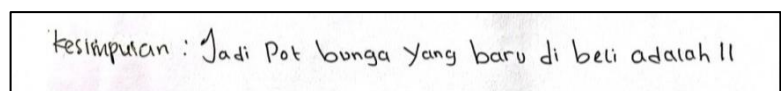 kesimpulan : Jadi Pot bunga Yang baru di beli adalah 11